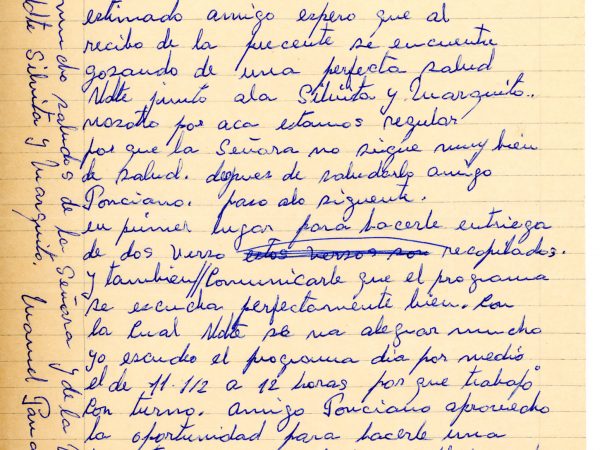 estimado amigo espero que al
recibo de la precente se encuentre
gosando de una perfecta salud
Udte junto ala Silvita y Marquito..
nosotto por aca estamos regular,
por que la Señara no sigue muy bien
de salud. depues de saludarlo amigo
Ponciano. paso alo siguente.
en primer lugar para hacerle entriega
de dos verso estos versos son recopilados.
y tambien//Comunicarle que el programa
se escucha perfectamente bien. Con
la Cual Udte se va alegrar mucho
yo escucho el programa dia por medio
el de 11·1/2 a 12 horas por que trabajo
Con turno. amigo Ponciano aprovecho
la oportunidad para hacerle una
mucho saludos de la Señara y de la
Udte Silvita y Marquito. Manuel